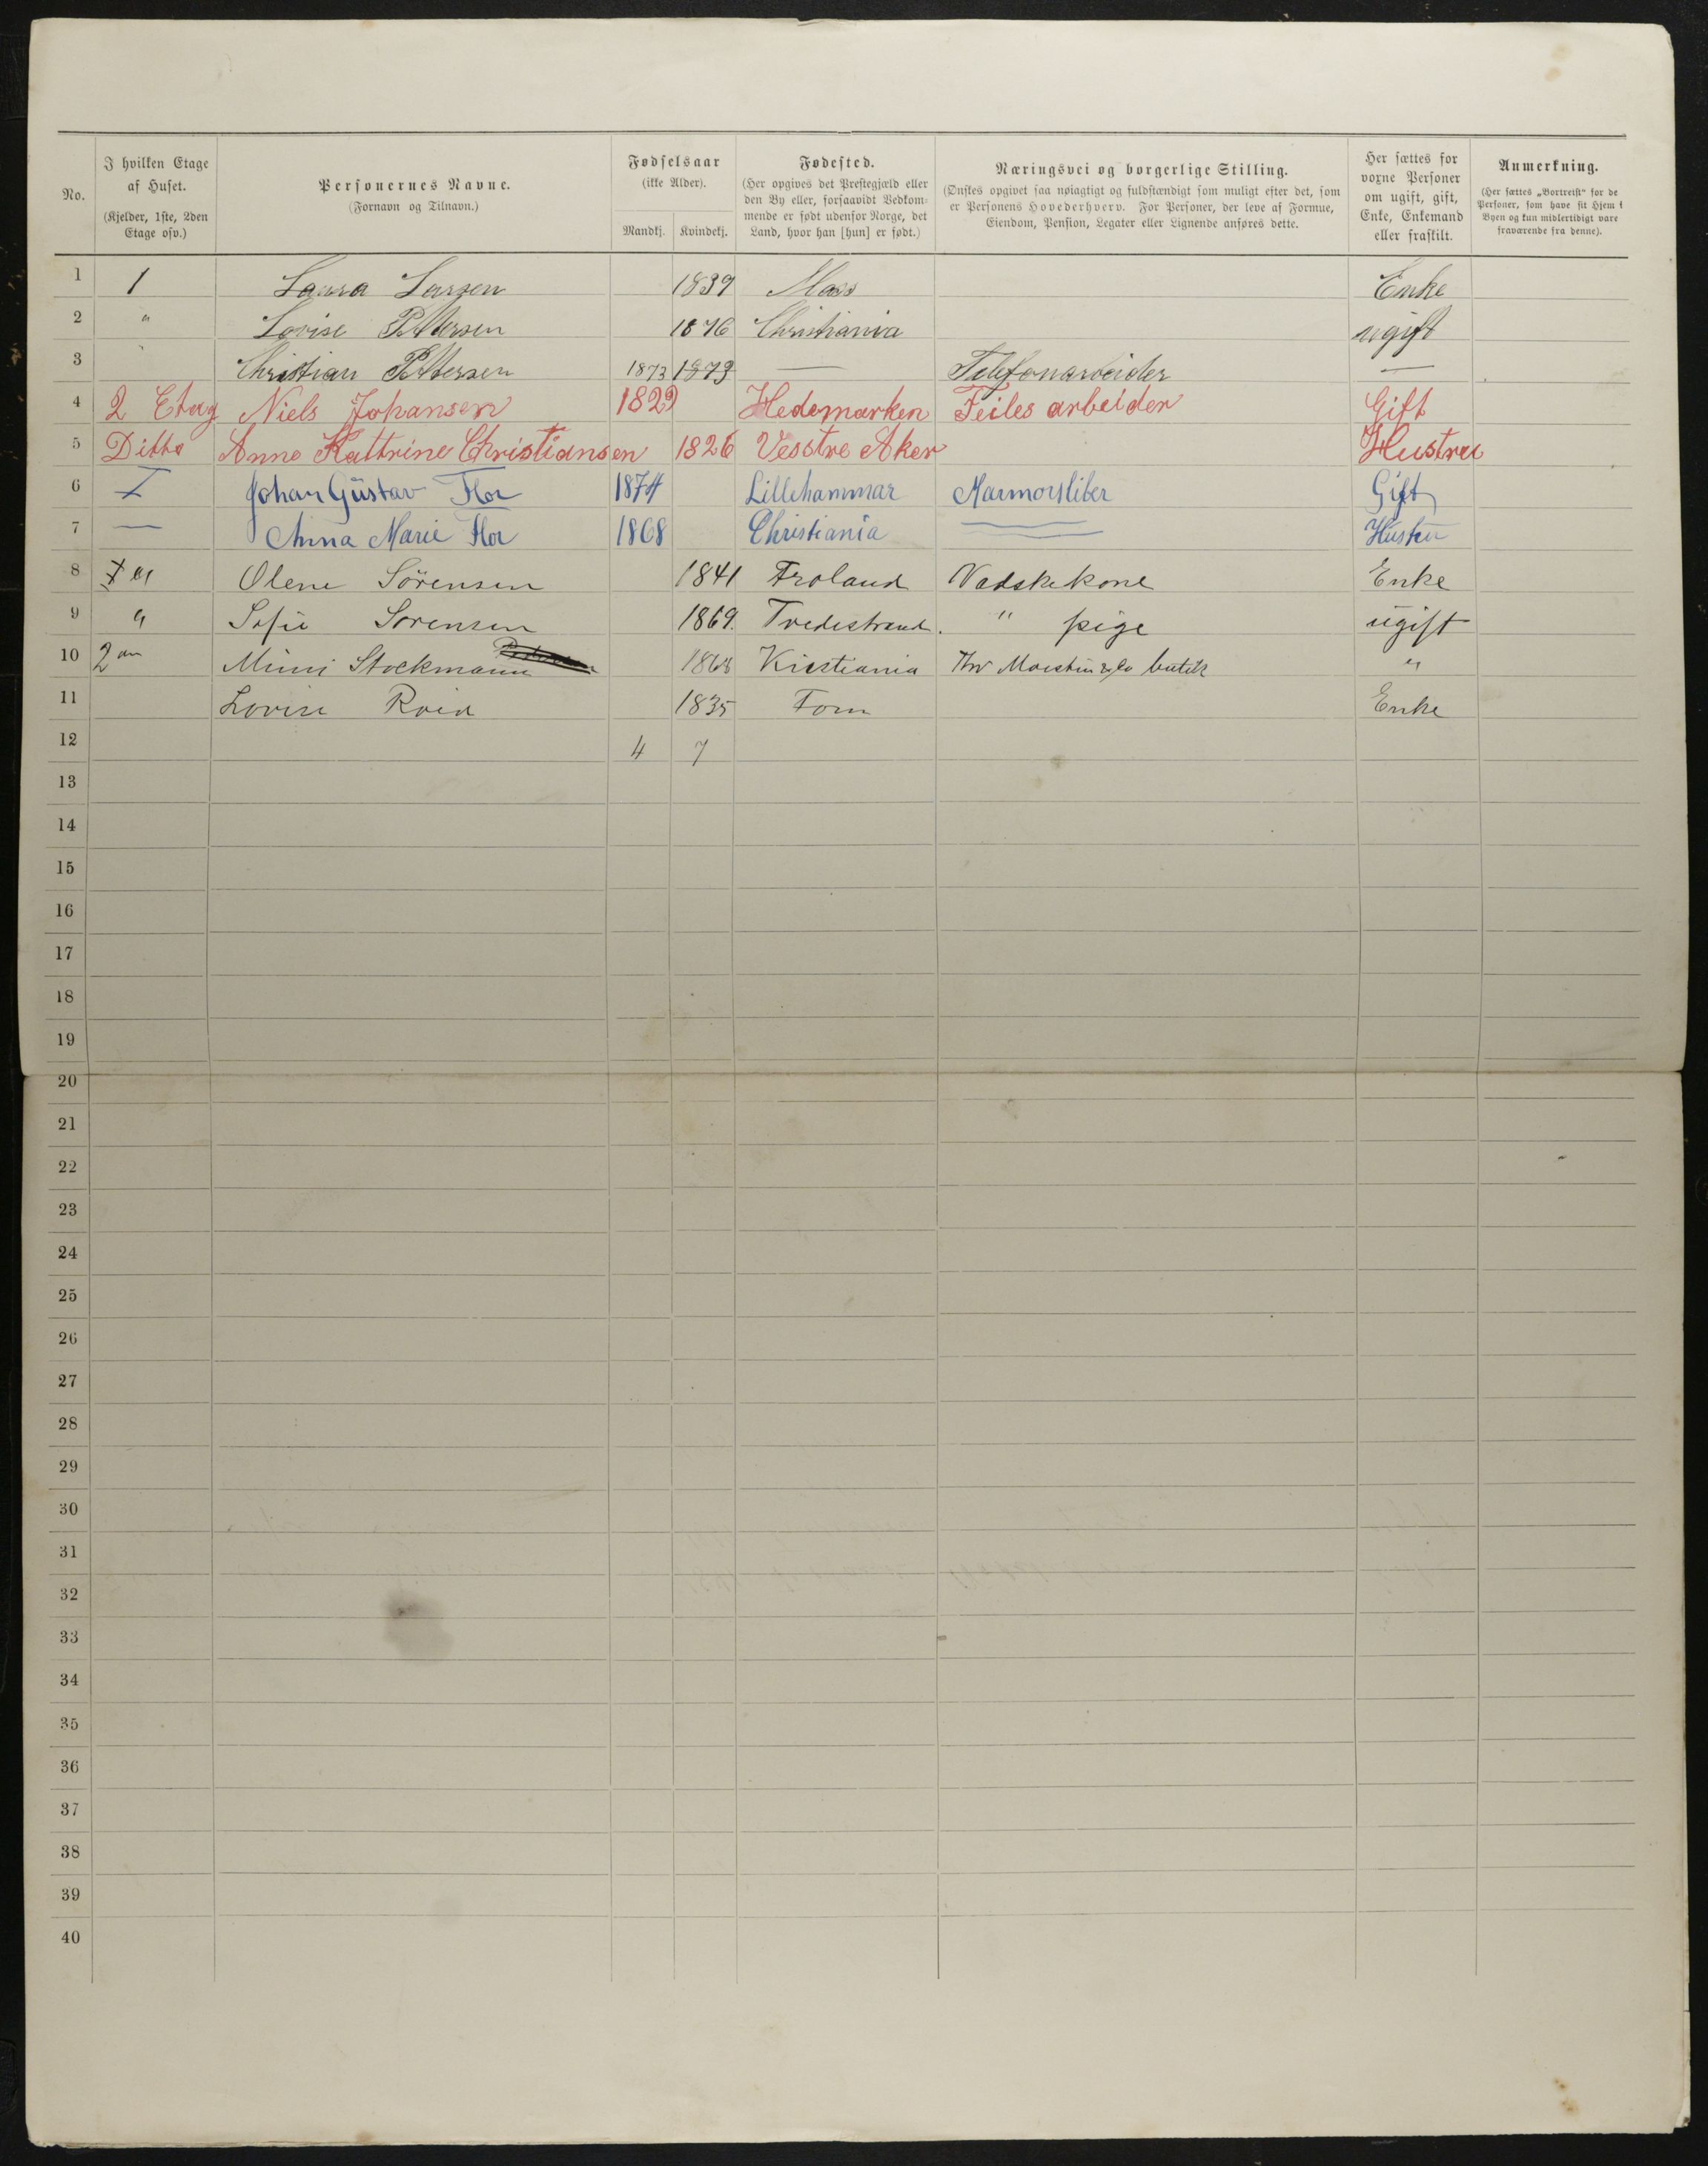 No.
I hvilken Etage af Huset.
(Kjelder, 1ste, 2den Etage osv.)
Personernes Navne.
(Fornavn og Tilnavn.)
Fødselsaar
(ikke Alder).
Mandkj. Kvindekj.
Fødested.
(Her opgives det Prestegjæld eller den By eller, forsaavidt Vedkommende er født udenfor Norge, det Land, hvor han [hun] er født.)
Næringsvei og borgerlige Stilling.
(Ønskes opgivet saa nøiagtigt og fuldstændigt som muligt efter det, som er Personens Hovederhverv. For Personer, der leve af Formue, Eiendom, Pension, Legater eller Lignende anføres dette.
Her sættes for voxne Personer om ugift, gift, Enke, Enkemand eller fraskilt.
Anmerkning.
(Her sættes „Bortreist“ for de Personer, som have sit Hjem i Byen og kun midlertidigt være fraværende fra denne).
1 1 Laura Larsen 1839 Moss Enke
2 " Lovise Pettersen 1876 Christiania ugift
3 " Christian Pettersen 1873 1873 — Telefonarbeider —
4 2 Etag Niels Johansen 1829 Hedemarken Feiles arbeider Gift
5 Ditto Anne Kattrine Christiansen 1826 Vesstre Aker Hustru
6 I Johan Gustav Flor 1874 Lillehammar Marmorsliber Gift
7 — Anna Marie Flor 1868 Christiania — Hustru
8 Olene Sörensen 1841 Froland Vadskekone Enke
9 " Sofie Sorensen 1869. Tvedestrand. " pige ugift
10 2 Mimi Stockmann 1868 Kristiania butik "
11 Lovise 1835 Enke
12 4 7
13
14
15
16
17
18
19
20
21
22
23
24
25
26
27
28
29
30
31
32
33
34
35
36
37
38
39
40